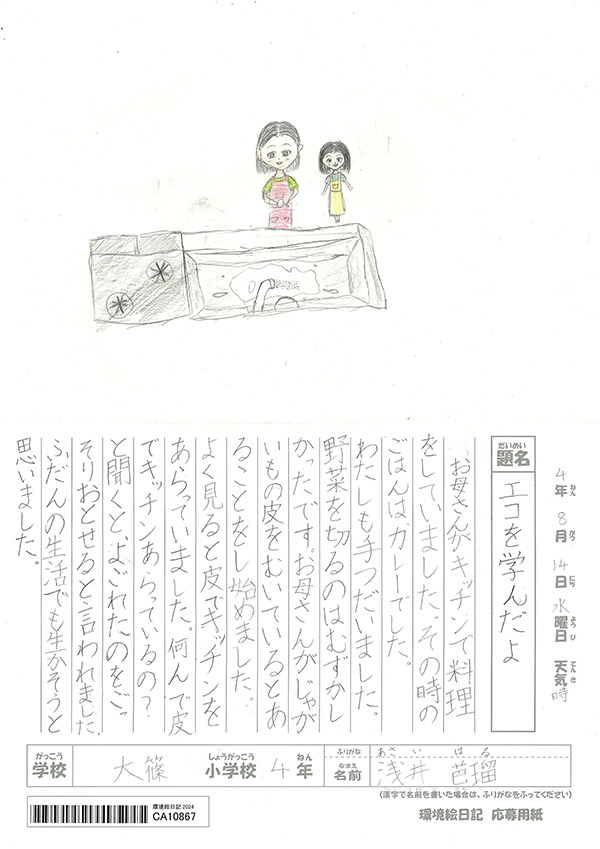 4年 8月 14日 水曜日 天気 時
ねん がつ にち ようび てんき
だいめい
題名 エコを学んだよ
お母さんがキッチンで料理
をしていました。その時の
ごはんはカレーでした。
わたしも手つだいました。
野菜を切るのはむずかし
かったです。お母さんがじゃが
いもの皮をむいているとあ
ることをし始めました。
よく見ると皮でキッチンを
あらっていました。何んで皮
でキッチンあらっているの?
と聞くと、よごれたのをごっ
そりおとせると言われました。
ふだんの生活でも生かそうと
思いました。
がっこう しょうがっこう ねん ふりがな あさい はる
学校 大篠 小学校 4年 なまえ 名前 浅井 芭瑠
(漢字で名前を書いた場合は、ふりがなをふってください)
環境絵日記 2024
CA10867
環境絵日記 応募用紙